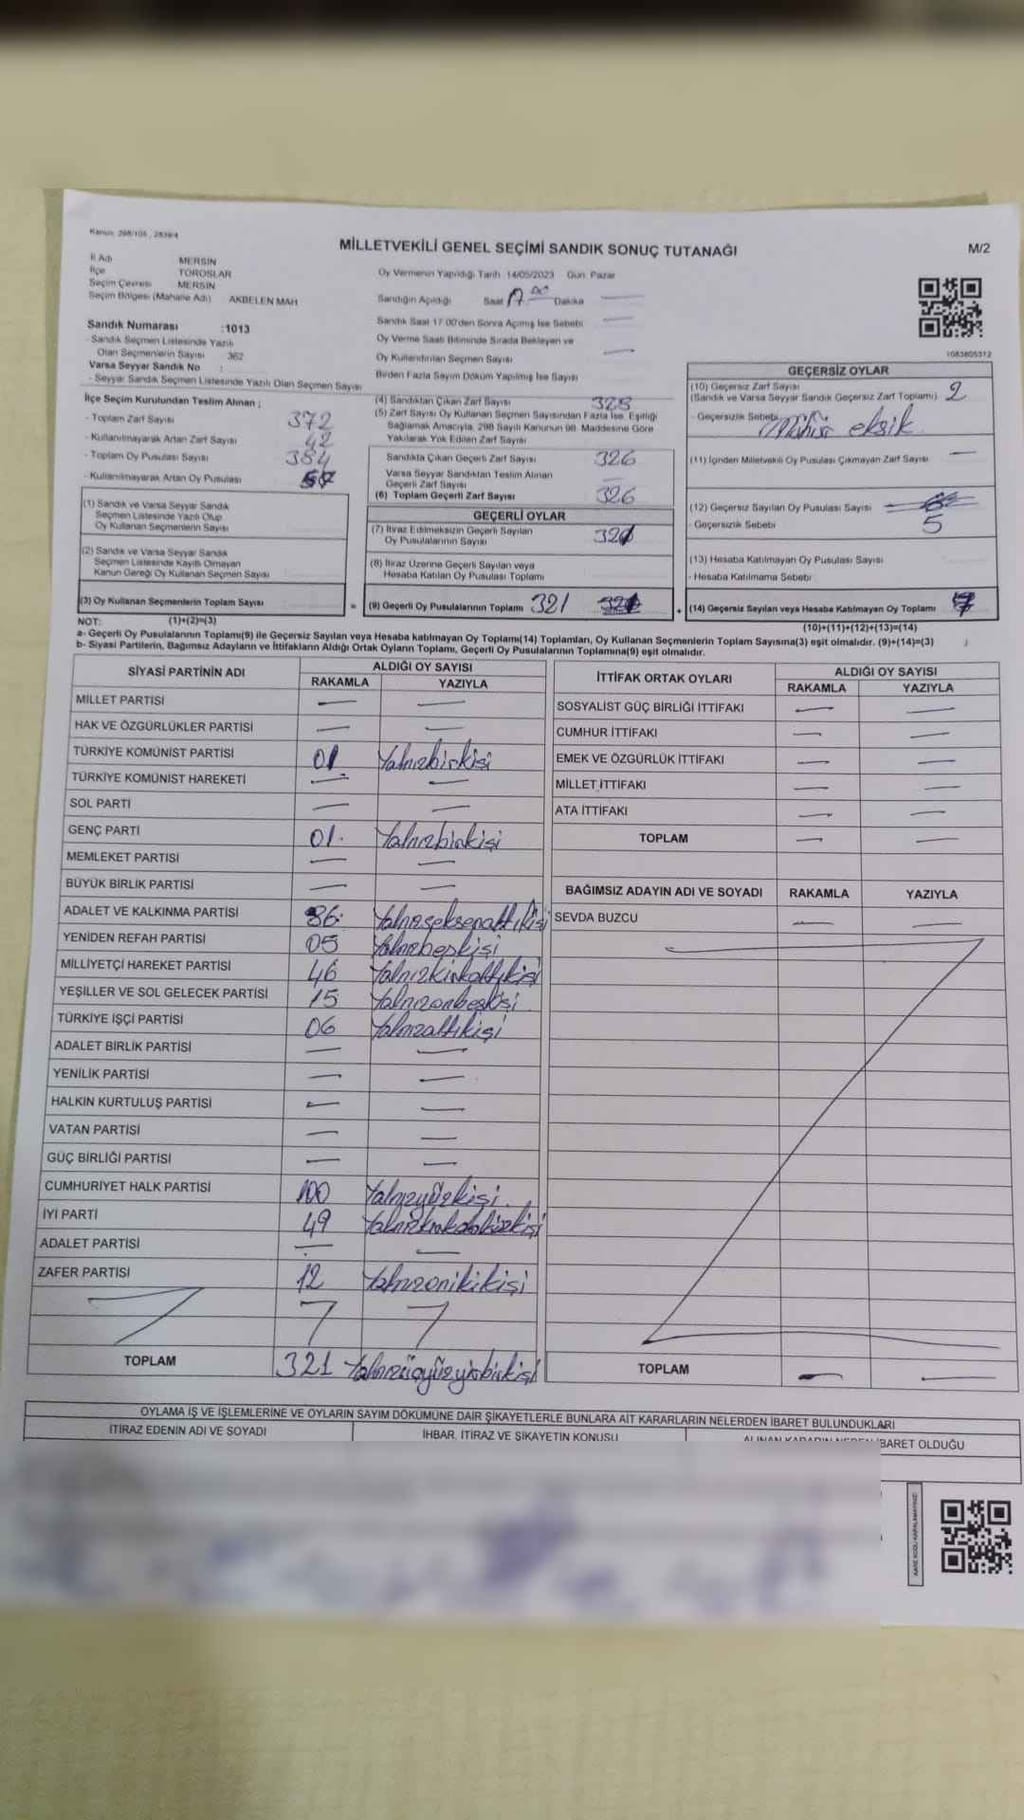 Kanun: 298/105 , 2839/4
MİLLETVEKİLİ GENEL SEÇİMİ SANDIK SONUÇ TUTANAĞI
M/2
İl Adı MERSİN
İlçe TOROSLAR
Seçim Çevresi MERSİN
Seçim Bölgesi (Mahalle Adı) AKBELEN MAH
Oy Vermenin Yapıldığı Tarih 14/05/2023 Gün Pazar
Sandığın Açıldığı Saat 17 00 Dakika —
Sandık Saat 17:00'den Sonra Açılmış İse Sebebi —
Oy Verme Saati Bitiminde Sırada Bekleyen ve
Oy Kullandırılan Seçmen Sayısı —
Birden Fazla Sayım Döküm Yapılmış İse Sayısı
1083805312
Sandık Numarası :1013
- Sandık Seçmen Listesinde Yazılı
Olan Seçmenlerin Sayısı 362
Varsa Seyyar Sandık No :
- Seyyar Sandık Seçmen Listesinde Yazılı Olan Seçmen Sayısı
İlçe Seçim Kurulundan Teslim Alınan ;
- Toplam Zarf Sayısı 372
- Kullanılmayarak Artan Zarf Sayısı 42
- Toplam Oy Pusulası Sayısı 384
- Kullanılmayarak Artan Oy Pusulası
(1) Sandık ve Varsa Seyyar Sandık
Seçmen Listesinde Yazılı Olup
Oy Kullanan Seçmenlerin Sayısı
(2) Sandık ve Varsa Seyyar Sandık
Seçmen Listesinde Kayıtlı Olmayan
Kanun Gereği Oy Kullanan Seçmen Sayısı
(3) Oy Kullanan Seçmenlerin Toplam Sayısı =
(4) Sandıktan Çıkan Zarf Sayısı 328
(5) Zarf Sayısı Oy Kullanan Seçmen Sayısından Fazla İse, Eşitliği
Sağlamak Amacıyla, 298 Sayılı Kanunun 98. Maddesine Göre
Yakılarak Yok Edilen Zarf Sayısı
Sandıkta Çıkan Geçerli Zarf Sayısı 326
Varsa Seyyar Sandıktan Teslim Alınan
Geçerli Zarf Sayısı
(6) Toplam Geçerli Zarf Sayısı 326
GEÇERLİ OYLAR
(7) İtiraz Edilmeksizin Geçerli Sayılan
Oy Pusulalarının Sayısı 321
(8) İtiraz Üzerine Geçerli Sayılan veya
Hesaba Katılan Oy Pusulası Toplamı
(9) Geçerli Oy Pusulalarının Toplamı 321 +
GEÇERSİZ OYLAR
(10) Geçersiz Zarf Sayısı
(Sandık ve Varsa Seyyar Sandık Geçersiz Zarf Toplamı) 2
- Geçersizlik Sebebi Mühür eksik
(11) İçinden Milletvekili Oy Pusulası Çıkmayan Zarf Sayısı —
(12) Geçersiz Sayılan Oy Pusulası Sayısı
- Geçersizlik Sebebi 5
(13) Hesaba Katılmayan Oy Pusulası Sayısı
- Hesaba Katılmama Sebebi
(14) Geçersiz Sayılan veya Hesaba Katılmayan Oy Toplamı 7
NOT: (1)+(2)=(3) (10)+(11)+(12)+(13)=(14)
a- Geçerli Oy Pusulalarının Toplamı(9) ile Geçersiz Sayılan veya Hesaba katılmayan Oy Toplamı(14) Toplamları, Oy Kullanan Seçmenlerin Toplam Sayısına(3) eşit olmalıdır. (9)+(14)=(3)
b- Siyasi Partilerin, Bağımsız Adayların ve İttifakların Aldığı Ortak Oyların Toplamı, Geçerli Oy Pusulalarının Toplamına(9) eşit olmalıdır.
SİYASİ PARTİNİN ADI ALDIĞI OY SAYISI
RAKAMLA YAZIYLA
MİLLET PARTİSİ — —
HAK VE ÖZGÜRLÜKLER PARTİSİ — —
TÜRKİYE KOMÜNİST PARTİSİ 01 Yalnızbirkişi
TÜRKİYE KOMÜNİST HAREKETİ — —
SOL PARTİ — —
GENÇ PARTİ 01 Yalnızbirkişi
MEMLEKET PARTİSİ — —
BÜYÜK BİRLİK PARTİSİ — —
ADALET VE KALKINMA PARTİSİ 86 Yalnızseksenaltıkişi
YENİDEN REFAH PARTİSİ 05 Yalnızbeşkişi
MİLLİYETÇİ HAREKET PARTİSİ 46 Yalnızkırkaltıkişi
YEŞİLLER VE SOL GELECEK PARTİSİ 15 Yalnızonbeşkişi
TÜRKİYE İŞÇİ PARTİSİ 06 Yalnızaltıkişi
ADALET BİRLİK PARTİSİ — —
YENİLİK PARTİSİ — —
HALKIN KURTULUŞ PARTİSİ — —
VATAN PARTİSİ — —
GÜÇ BİRLİĞİ PARTİSİ — —
CUMHURİYET HALK PARTİSİ 100 Yalnızyüzkişi
İYİ PARTİ 49 Yalnızkırkdokuzkişi
ADALET PARTİSİ — —
ZAFER PARTİSİ 12 Yalnızonikikişi
TOPLAM 321 Yalnızüçyüzyirmibirkişi
İTTİFAK ORTAK OYLARI ALDIĞI OY SAYISI
RAKAMLA YAZIYLA
SOSYALİST GÜÇ BİRLİĞİ İTTİFAKI — —
CUMHUR İTTİFAKI — —
EMEK VE ÖZGÜRLÜK İTTİFAKI — —
MİLLET İTTİFAKI — —
ATA İTTİFAKI — —
TOPLAM — —
BAĞIMSIZ ADAYIN ADI VE SOYADI RAKAMLA YAZIYLA
SEVDA BUZCU — —
TOPLAM — —
OYLAMA İŞ VE İŞLEMLERİNE VE OYLARIN SAYIM DÖKÜMÜNE DAİR ŞİKAYETLERLE BUNLARA AİT KARARLARIN NELERDEN İBARET BULUNDUKLARI
İTİRAZ EDENİN ADI VE SOYADI İHBAR, İTİRAZ VE ŞİKAYETİN KONUSU ALINAN KARARIN NEDEN İBARET OLDUĞU
KARE KODU KARALAMAYINIZ!